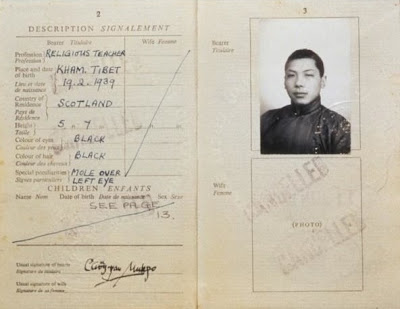 2
DESCRIPTION SIGNALEMENT
Bearer Titulaire
Wife Femme
Profession RELIGIOUS TEACHER
Profession
Place and date KHAM. TIBET
of birth
Lieu et date 19.2.1939
de naissance
Country of
Residence SCOTLAND
Pays de
Résidence
Height 5. 7
Taille
Colour of eyes BLACK
Couleur des yeux
Colour of hair BLACK
Couleur des cheveux
Special peculiarities MOLE OVER
Signes particuliers LEFT EYE
CHILDREN ENFANTS
Name Nom Date of birth Date de naissance Sex Sexe
SEE PAGE
13.
Usual signature of bearer
Signature du titulaire
Usual signature of wife
Signature de sa femme
3
Bearer
Titulaire
Wife
Femme
CANCELLED
(PHOTO)
CANCELLED